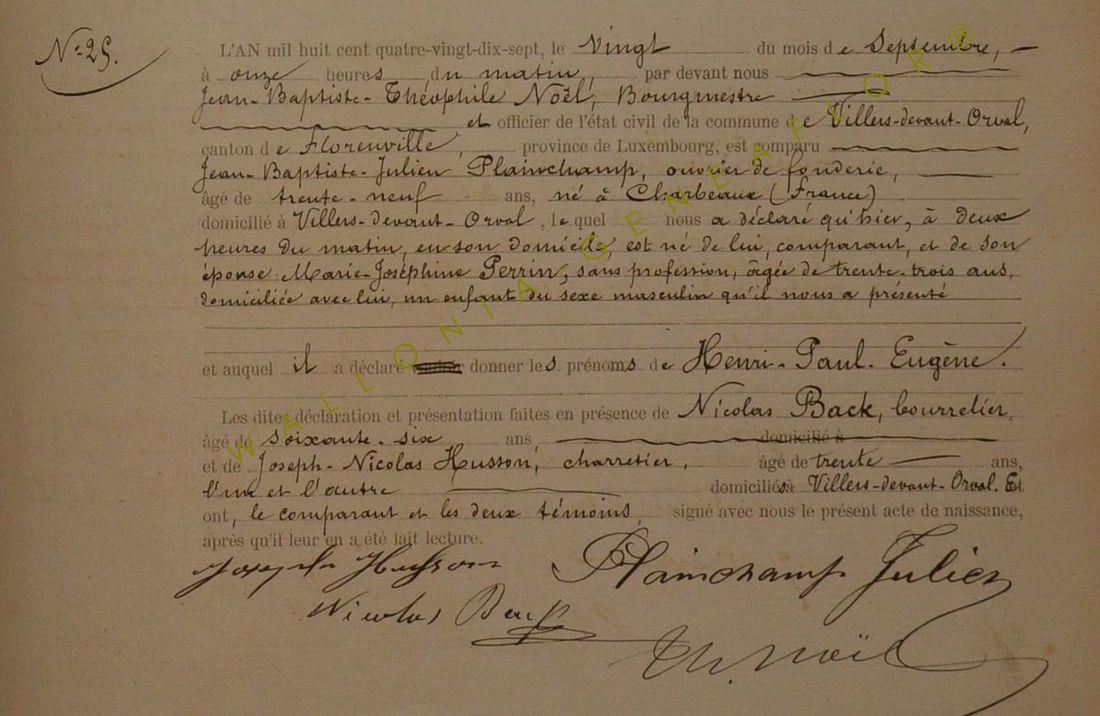 Nº 25.
L'AN mil huit cent quatre-vingt-dix-sept, le vingt du mois de Septembre,
à onze heures du matin, par devant nous
Jean-Baptiste-Théophile Noël, Bourgmestre
et officier de l'état civil de la commune de Villers-devant-Orval,
canton de Florenville, province de Luxembourg, est comparu
Jean-Baptiste-Julien Plainchamp, ouvrier de fonderie,
âgé de trente-neuf ans, né à Charbeaux (France)
domicilié à Villers-devant-Orval, lequel nous a déclaré qu'hier, à deux
heures du matin, en son domicile, est né de lui, comparant, et de son
épouse Marie-Joséphine Perrin, sans profession, âgée de trente-trois ans,
domiciliée avec lui, un enfant du sexe masculin qu'il nous a présenté
et auquel il a déclaré donner les prénoms de Henri-Paul-Eugène.
Les dites déclaration et présentation faites en présence de Nicolas Back, bourrelier,
âgé de soixante-six ans, domicilié à
et de Joseph-Nicolas Husson, charretier, âgé de trente ans,
l'un et l'autre domiciliés à Villers-devant-Orval. Et
ont, le comparant et les deux témoins, signé avec nous le présent acte de naissance,
après qu'il leur en a été fait lecture.
Joseph Husson Plainchamp Julien
Nicolas Back
Th. Noël
WALLONIA GENEAFVOR®